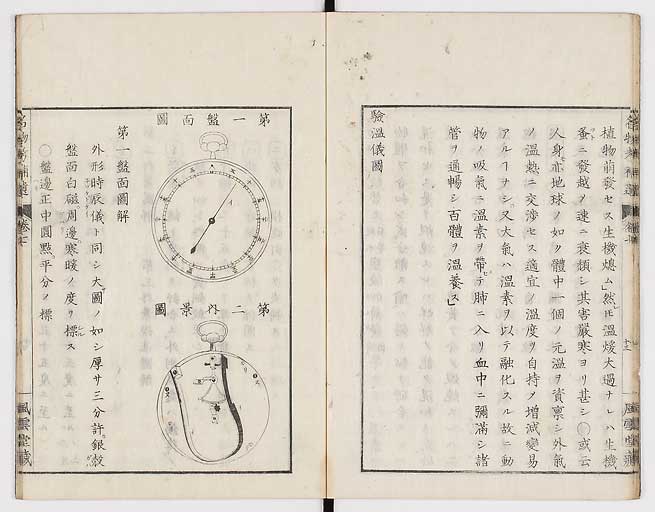 植物萠發セス生機熄ム」然𪜈溫煖大過ナレハ生機
蚤ニ發越ノ速ニ衰頽シ其害嚴寒ヨリ甚シ○或云
人身亦地球ノ如ク體中一個ノ元溫ヲ資稟シ外氣
ノ溫熱ニ交渉セス適宜ノ溫度ヲ自持ノ增減變易
アルヿナシ又大氣ハ溫素ヲ以テ融化スル故ニ動
物ノ吸氣ニ溫素ヲ帶テ肺ニ入リ血中ニ彌滿シ諸
管ヲ通暢シ百體ヲ溫養ス」
驗溫儀圖
風雲堂藏
第一盤面圖
第二內景圖
第一盤面圖解
外形時辰儀ト同シ大圖ノ如シ厚サ三分許銀殼
盤面白磁周邊寒暖ノ度ヲ標ス
○盤邊正中圓點平分ノ標
卷七
風雲堂藏